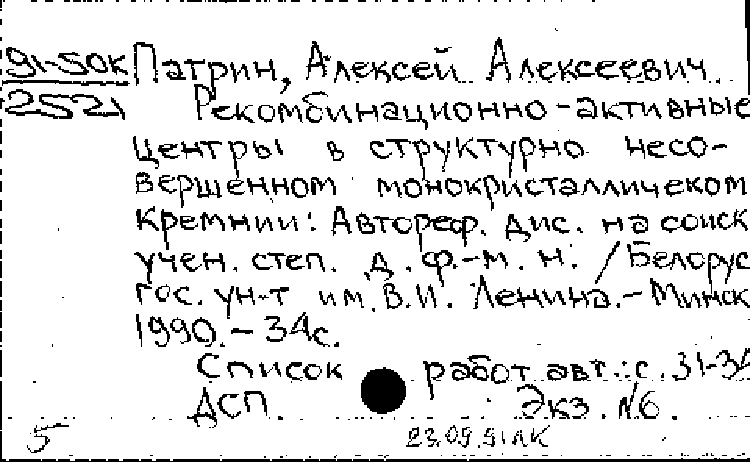 91-50к Патрин, Алексей Алексеевич
2521 Рекомбинационно-активные
центры в структурно несо-
вершенном монокристалличеком
кремнии: Автореф. дис. на соиск
учен. степ. д. ф.-м. н. / Белорус
гос. ун-т им. В.И. Ленина.-Минск
1990.-34с.
Список работ авт.: с. 31-34
ДСП. Экз. №6.
5 23.09.91 ЛК